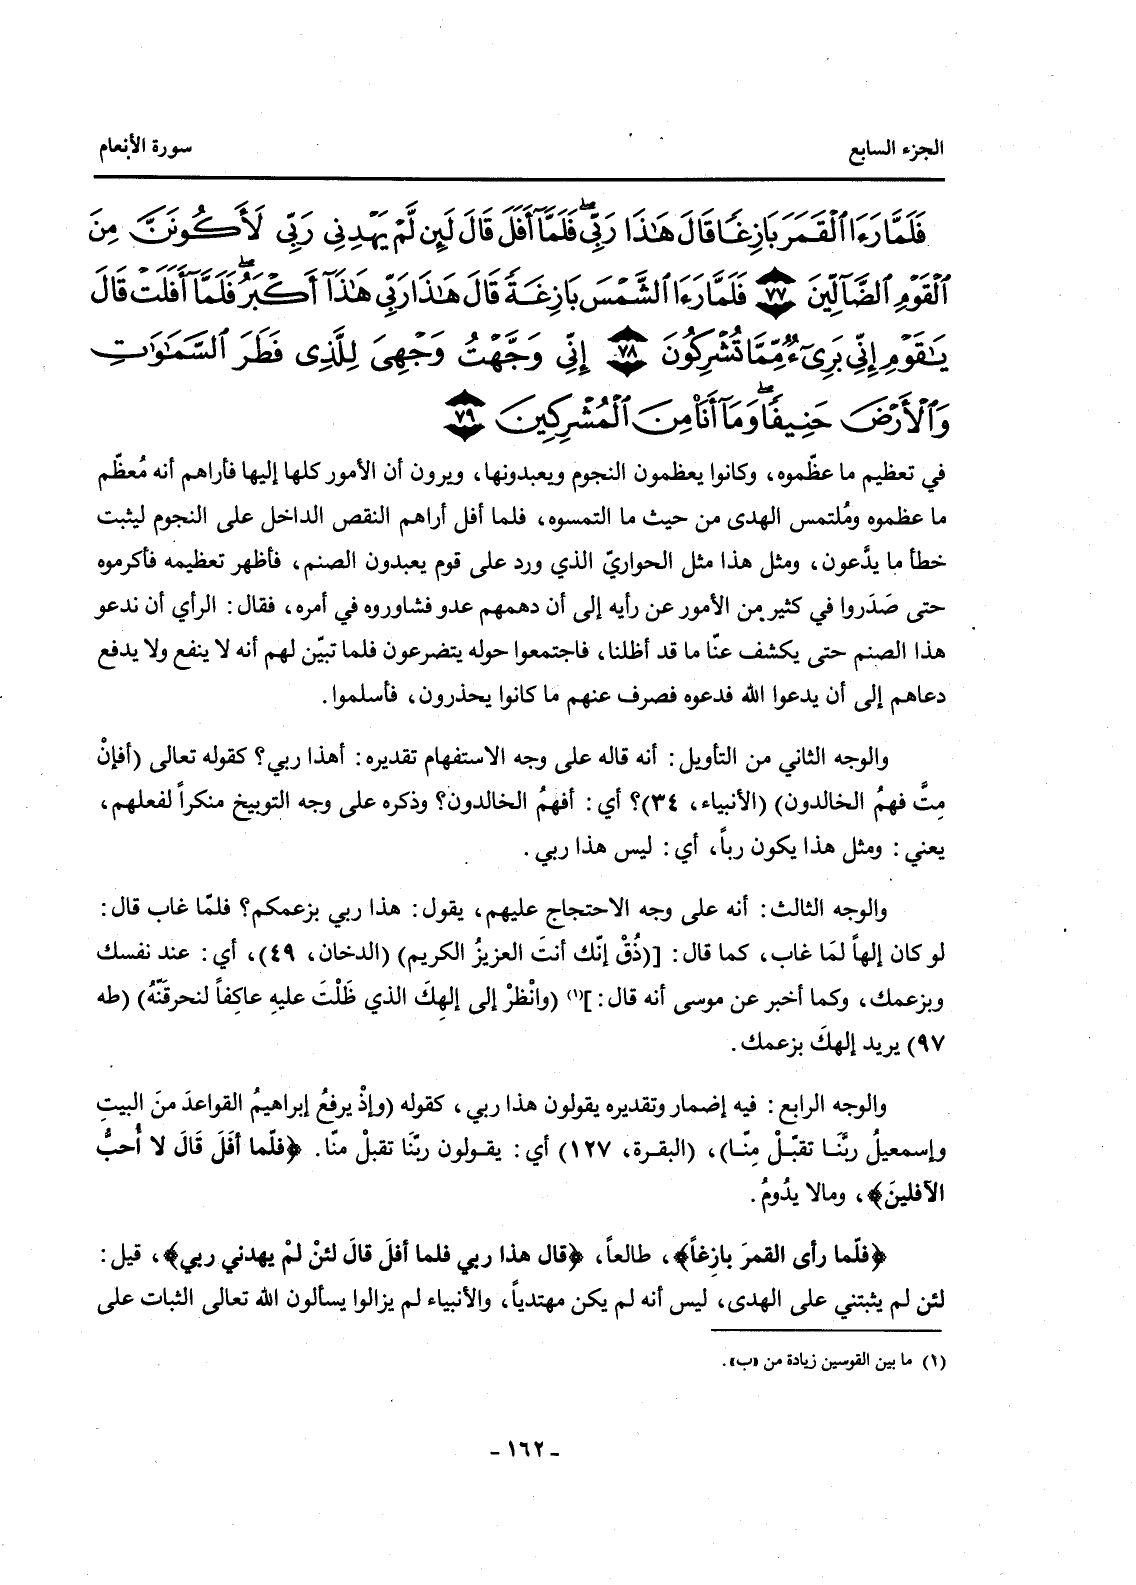 الجزء السابع
سورة الأنعام
فَلَمَّا رَءَا ٱلۡقَمَرَ بَازِغٗا قَالَ هَٰذَا رَبِّيۖ فَلَمَّآ أَفَلَ قَالَ لَئِن لَّمۡ يَهۡدِنِي رَبِّي لَأَكُونَنَّ مِنَ
ٱلۡقَوۡمِ ٱلضَّآلِّينَ ٧٧ فَلَمَّا رَءَا ٱلشَّمۡسَ بَازِغَةٗ قَالَ هَٰذَا رَبِّي هَٰذَآ أَكۡبَرُۖ فَلَمَّآ أَفَلَتۡ قَالَ
يَٰقَوۡمِ إِنِّي بَرِيٓءٞ مِّمَّا تُشۡرِكُونَ ٧٨ إِنِّي وَجَّهۡتُ وَجۡهِيَ لِلَّذِي فَطَرَ ٱلسَّمَٰوَٰتِ
وَٱلۡأَرۡضَ حَنِيفٗاۖ وَمَآ أَنَا۠ مِنَ ٱلۡمُشۡرِكِينَ ٧٩
في تعظيم ما عظّموه، وكانوا يعظمون النجوم ويعبدونها، ويرون أن الأمور كلها إليها فأراهم أنه مُعظّم
ما عظموه ومُلتمس الهدى من حيث ما التمسوه، فلما أفل أراهم النقص الداخل على النجوم ليثبت
خطأ ما يدَّعون، ومثل هذا مثل الحواريّ الذي ورد على قوم يعبدون الصنم، فأظهر تعظيمه فأكرموه
حتى صَدَروا في كثير من الأمور عن رأيه إلى أن دهمهم عدو فشاوروه في أمره، فقال: الرأي أن ندعو
هذا الصنم حتى يكشف عنّا ما قد أظلنا، فاجتمعوا حوله يتضرعون فلما تبيّن لهم أنه لا ينفع ولا يدفع
دعاهم إلى أن يدعوا الله فدعوه فصرف عنهم ما كانوا يحذرون، فأسلموا.
والوجه الثاني من التأويل: أنه قاله على وجه الاستفهام تقديره: أهذا ربي؟ كقوله تعالى (أفإنْ
مِتَّ فهمُ الخالدون) (الأنبياء، ٣٤)؟ أي: أفهمُ الخالدون؟ وذكره على وجه التوبيخ منكراً لفعلهم،
يعني: ومثل هذا يكون رباً، أي: ليس هذا ربي.
والوجه الثالث: أنه على وجه الاحتجاج عليهم، يقول: هذا ربي بزعمكم؟ فلمّا غاب قال:
لو كان إلهاً لمَا غاب، كما قال: [(ذُقْ إنّك أنتَ العزيزُ الكريم) (الدخان، ٤٩)، أي: عند نفسك
وبزعمك، وكما أخبر عن موسى أنه قال:](١) (وانْظرْ إلى إلهِكَ الذي ظَلْتَ عليهِ عاكِفاً لنحرقَنّهُ) (طه
٩٧) يريد إلهكَ بزعمك.
والوجه الرابع: فيه إضمار وتقديره يقولون هذا ربي، كقوله (وإذْ يرفعُ إبراهيمُ القواعدَ منَ البيتِ
وإسمعيلُ ربَّنَا تقبّلْ مِنّا)، (البقرة، ١٢٧) أي: يقولون ربّنَا تقبلْ منّا. ﴿فلّما أفَلَ قَالَ لا أُحبُّ
الآفلينَ﴾، ومالا يدُومُ.
﴿فلّما رأى القمرَ بازِغاً﴾، طالعاً، ﴿قال هذا ربي فلما أفلَ قالَ لئنْ لمْ يهدني ربي﴾، قيل:
لئن لم يثبتني على الهدى، ليس أنه لم يكن مهتدياً، والأنبياء لم يزالوا يسألون الله تعالى الثبات على
(١) ما بين القوسين زيادة من «ب».
- ١٦٢ -